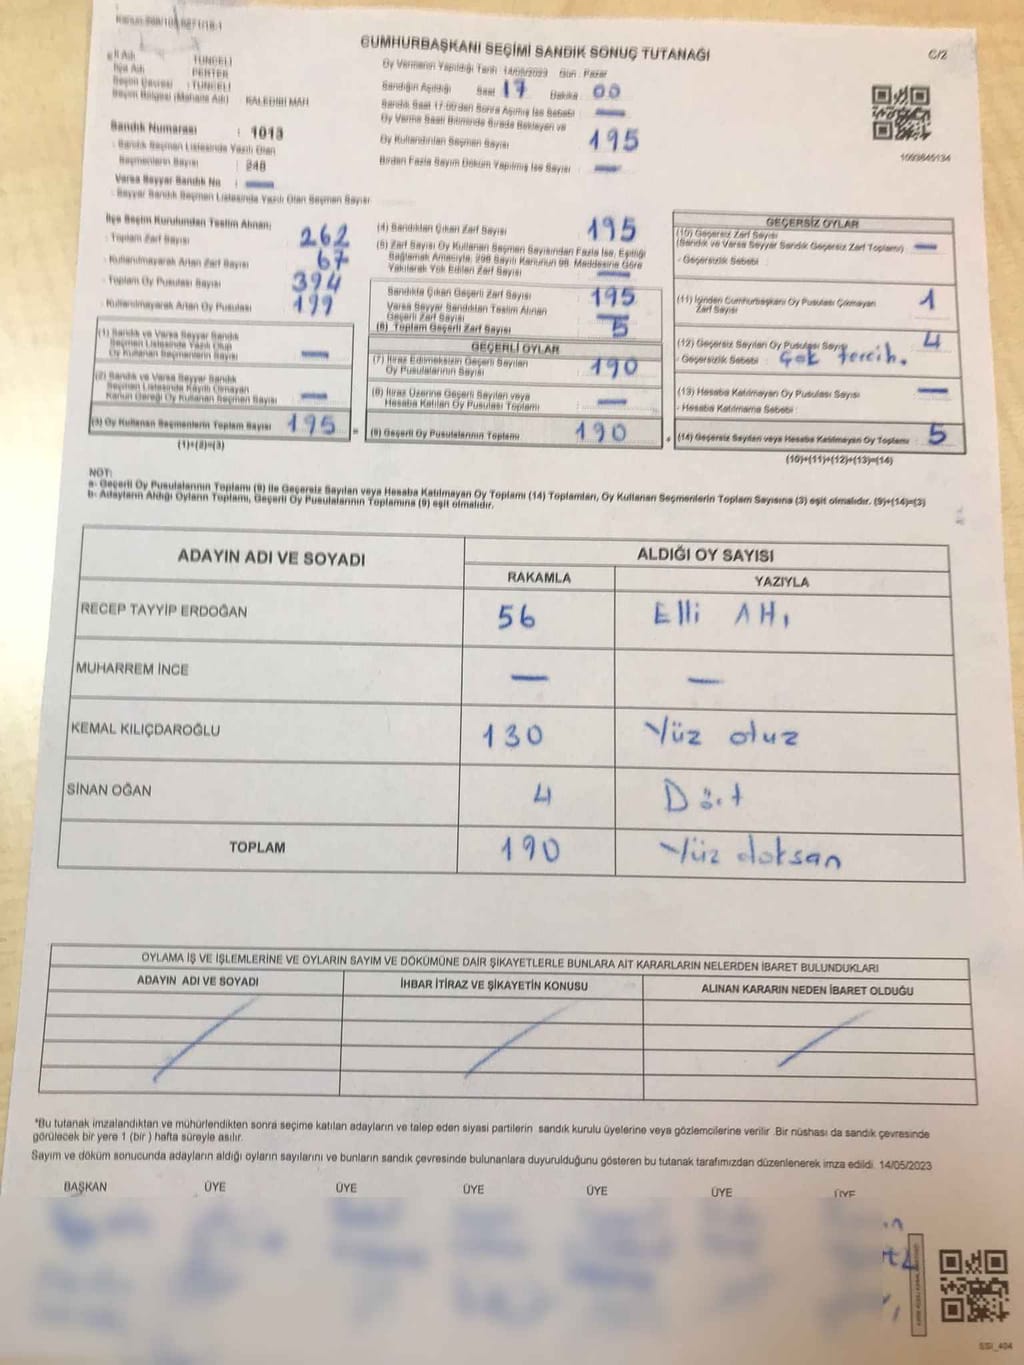 CUMHURBAŞKANI SEÇİMİ SANDIK SONUÇ TUTANAĞI
C/2
İl Adı : TUNCELİ
İlçe Adı : PERTEK
Seçim Çevresi : TUNCELİ
Seçim Bölgesi (Mahalle Adı) : KALEDİBİ MAH
Sandık Numarası : 1013
Sandık Seçmen Listesinde Yazılı Olan
Seçmenlerin Sayısı : 248
Varsa Seyyar Sandık No : —
Seyyar Sandık Seçmen Listesinde Yazılı Olan Seçmen Sayısı
Oy Vermenin Yapıldığı Tarih 14/05/2023 Gün : Pazar
Sandığın Açıldığı Saat 17 Dakika 00
Sandık Saat 17:00'den Sonra Açılmış İse Sebebi : —
Oy Verme Saati Bitiminde Sırada Bekleyen ve
Oy Kullandırılan Seçmen Sayısı : 195
Birden Fazla Sayım Döküm Yapılmış İse Sayısı : —
1093845134
İlçe Seçim Kurulundan Teslim Alınan;
- Toplam Zarf Sayısı : 262
- Kullanılmayarak Artan Zarf Sayısı : 67
- Toplam Oy Pusulası Sayısı : 394
- Kullanılmayarak Artan Oy Pusulası : 199
(1) Sandık ve Varsa Seyyar Sandık
Seçmen Listesinde Yazılı Olup
Oy Kullanan Seçmenlerin Sayısı : —
(2) Sandık ve Varsa Seyyar Sandık
Seçmen Listesinde Kayıtlı Olmayan
Kanun Gereği Oy Kullanan Seçmen Sayısı : —
(3) Oy Kullanan Seçmenlerin Toplam Sayısı : 195
(1)+(2)=(3)
(4) Sandıktan Çıkan Zarf Sayısı : 195
(5) Zarf Sayısı Oy Kullanan Seçmen Sayısından Fazla İse, Eşitliği
Sağlamak Amacıyla, 298 Sayılı Kanunun 98. Maddesine Göre
Yakılarak Yok Edilen Zarf Sayısı : —
Sandıkta Çıkan Geçerli Zarf Sayısı : 195
Varsa Seyyar Sandıktan Teslim Alınan
Geçerli Zarf Sayısı : —
(6) Toplam Geçerli Zarf Sayısı : 5
GEÇERLİ OYLAR
(7) İtiraz Edilmeksizin Geçerli Sayılan
Oy Pusulalarının Sayısı : 190
(8) İtiraz Üzerine Geçerli Sayılan veya
Hesaba Katılan Oy Pusulası Toplamı : —
(9) Geçerli Oy Pusulalarının Toplamı : 190
GEÇERSİZ OYLAR
(10) Geçersiz Zarf Sayısı
(Sandık ve Varsa Seyyar Sandık Geçersiz Zarf Toplamı) : —
- Geçersizlik Sebebi :
(11) İçinden Cumhurbaşkanı Oy Pusulası Çıkmayan
Zarf Sayısı : 1
(12) Geçersiz Sayılan Oy Pusulası Sayısı 4
- Geçersizlik Sebebi : Çok tercih.
(13) Hesaba Katılmayan Oy Pusulası Sayısı : —
- Hesaba Katılmama Sebebi :
(14) Geçersiz Sayılan veya Hesaba Katılmayan Oy Toplamı : 5
(10)+(11)+(12)+(13)=(14)
NOT:
a- Geçerli Oy Pusulalarının Toplamı (9) ile Geçersiz Sayılan veya Hesaba Katılmayan Oy Toplamı (14) Toplamları, Oy Kullanan Seçmenlerin Toplam Sayısına (3) eşit olmalıdır. (9)+(14)=(3)
b- Adayların Aldığı Oyların Toplamı, Geçerli Oy Pusulalarının Toplamına (9) eşit olmalıdır.
ADAYIN ADI VE SOYADI
ALDIĞI OY SAYISI
RAKAMLA YAZIYLA
RECEP TAYYİP ERDOĞAN 56 Elli Altı
MUHARREM İNCE — —
KEMAL KILIÇDAROĞLU 130 Yüz otuz
SİNAN OĞAN 4 Dört
TOPLAM 190 Yüz doksan
OYLAMA İŞ VE İŞLEMLERİNE VE OYLARIN SAYIM VE DÖKÜMÜNE DAİR ŞİKAYETLERLE BUNLARA AİT KARARLARIN NELERDEN İBARET BULUNDUKLARI
ADAYIN ADI VE SOYADI İHBAR İTİRAZ VE ŞİKAYETİN KONUSU ALINAN KARARIN NEDEN İBARET OLDUĞU
*Bu tutanak imzalandıktan ve mühürlendikten sonra seçime katılan adayların ve talep eden siyasi partilerin sandık kurulu üyelerine veya gözlemcilerine verilir. Bir nüshası da sandık çevresinde
görülecek bir yere 1 (bir ) hafta süreyle asılır.
Sayım ve döküm sonucunda adayların aldığı oyların sayılarını ve bunların sandık çevresinde bulunanlara duyurulduğunu gösteren bu tutanak tarafımızdan düzenlenerek imza edildi. 14/05/2023
BAŞKAN ÜYE ÜYE ÜYE ÜYE ÜYE ÜYE
SSİ_404